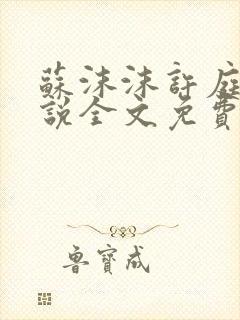 蘇沫沫許庭
說全文免費
魯寶成